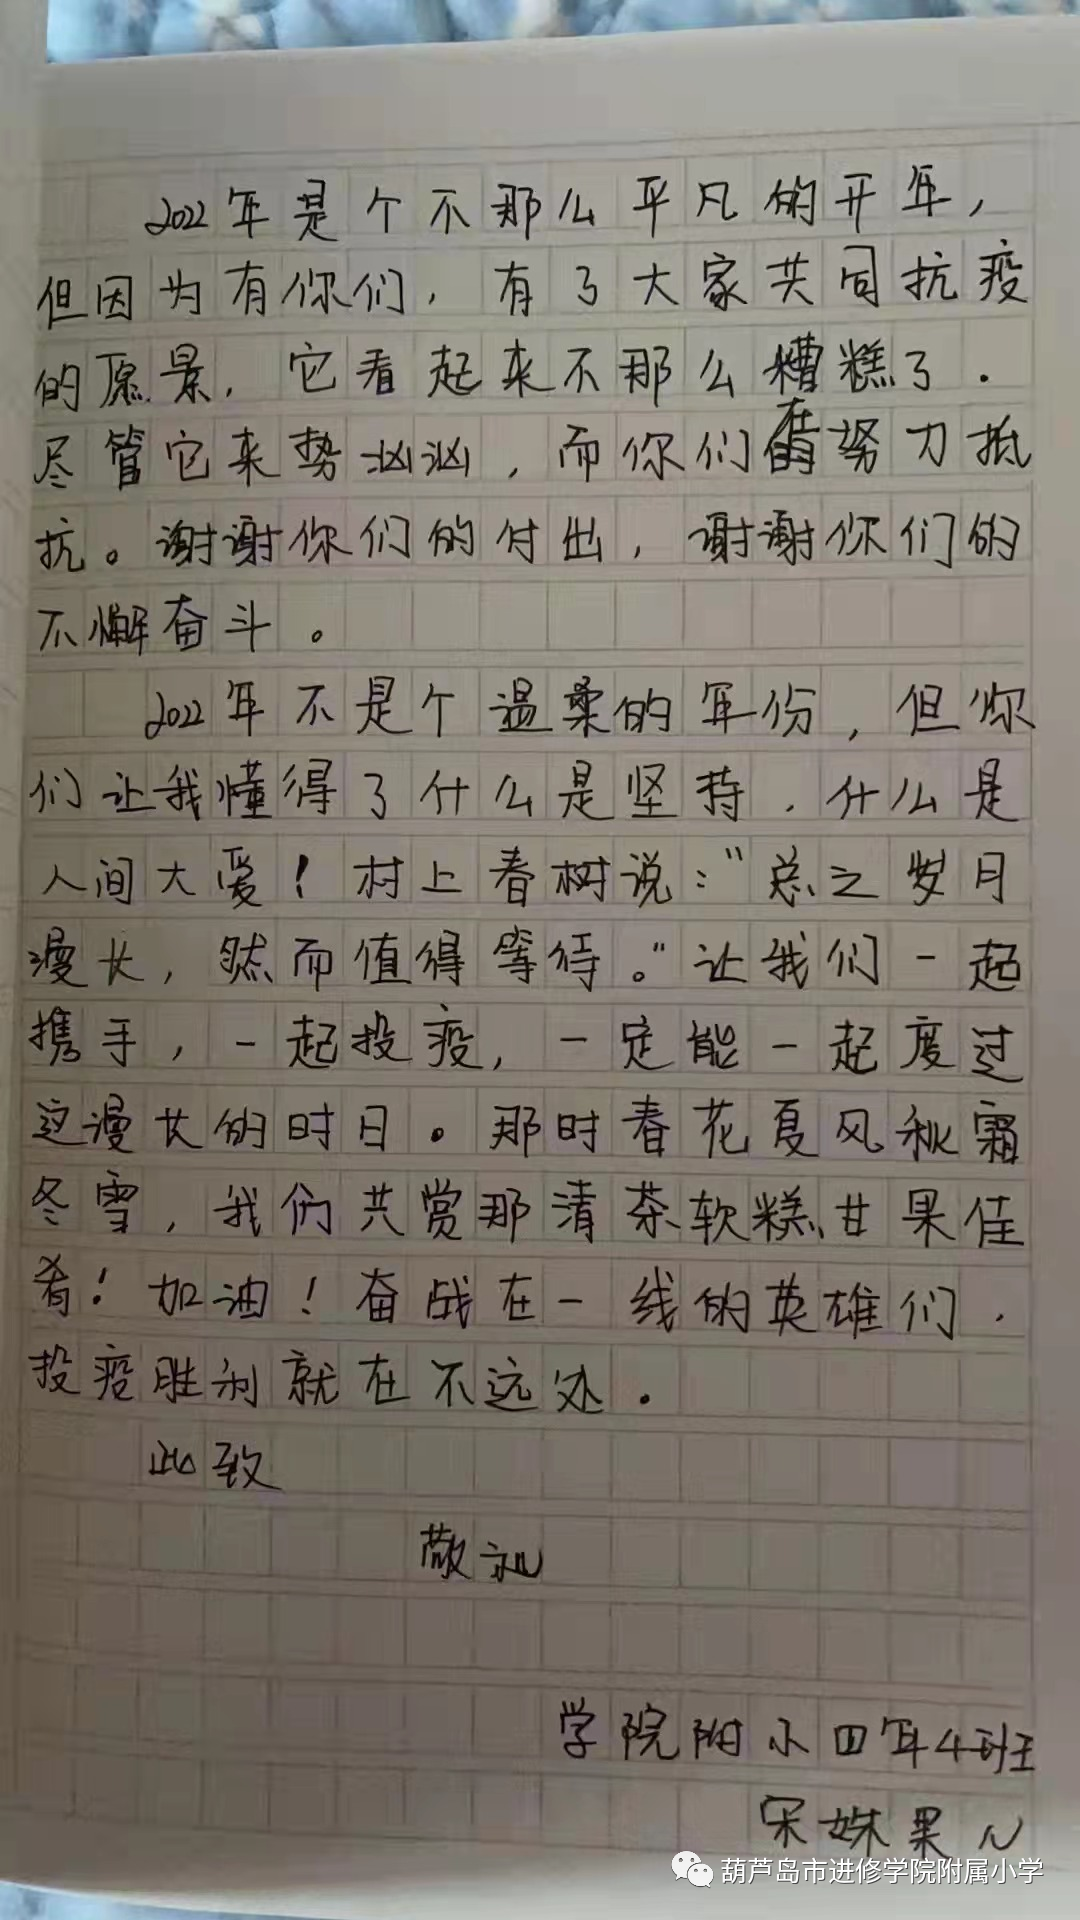 2022年是个不那么平凡的开年，
但因为有你们，有了大家共同抗疫
的愿景，它看起来不那么糟糕了．
尽管它来势汹汹，而你们在努力抵
抗。谢谢你们的付出，谢谢你们的
不懈奋斗。
2022年不是个温柔的年份，但你
们让我懂得了什么是坚持，什么是
人间大爱！村上春树说："总之岁月
漫长，然而值得等待。"让我们一起
携手，一起投疫，一定能一起度过
这漫长的时日。那时春花夏风秋霜
冬雪，我们共赏那清茶软糕甘果佳
肴！加油！奋战在一线的英雄们，
投疫胜利就在不远处．
此致
敬礼
学院附小四年4班
宋姝果
葫芦岛市进修学院附属小学